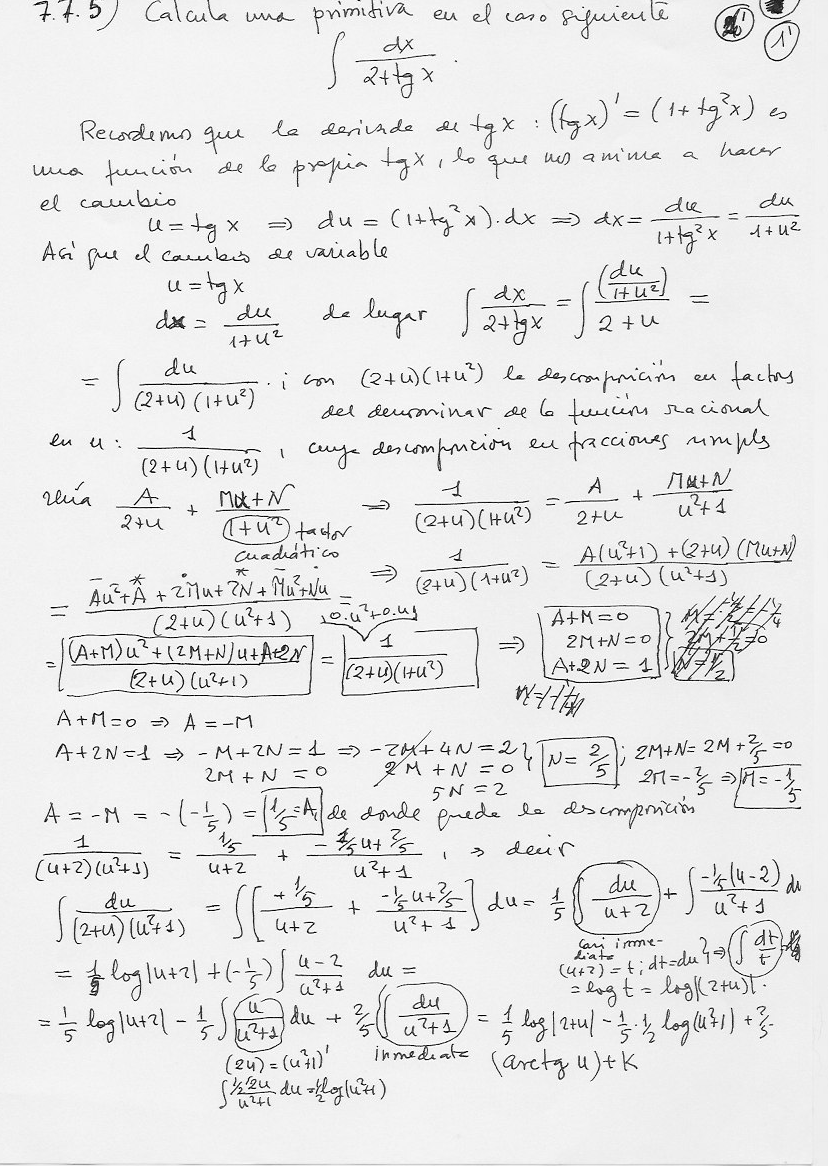 7.7.5) Calcula una primitiva en el caso siguiente
1'
∫ dx/(2+tg x).
Recordemos que la derivada de tg x : (tg x)' = (1+tg²x) es
una función de la propia tg x, lo que nos anima a hacer
el cambio
u = tg x ⇒ du = (1+tg²x)·dx ⇒ dx = du/(1+tg²x) = du/(1+u²)
Así que el cambio de variable
u = tg x
dx = du/(1+u²) da lugar ∫ dx/(2+tg x) = ∫ (du/(1+u²))/(2+u) =
= ∫ du/((2+u)(1+u²)) . ; con (2+u)(1+u²) la descomposición en factors
del denominar de la función racional
en u : 1/((2+u)(1+u²)) , cuya descomposición en fracciones simples
sería A/(2+u) + (Mu+N)/(1+u²) ⇒ 1/((2+u)(1+u²)) = A/(2+u) + (Mu+N)/(u²+1)
factor cuadrático
⇒ 1/((2+u)(1+u²)) = (A(u²+1)+(2+u)(Mu+N))/((2+u)(u²+1))
= (Au²+A+2Mu+2N+Mu²+Nu)/((2+u)(u²+1)) =
= ((A+M)u²+(2M+N)u+A+2N)/((2+u)(u²+1)) = (0·u²+0·u+1)/((2+u)(1+u²)) ⇒
A+M=0
2M+N=0
A+2N=1
A+M=0 ⇒ A = -M
A+2N=1 ⇒ -M+2N=1 ⇒ -2M+4N=2 } N = 2/5 ; 2M+N = 2M+2/5 = 0
2M+N = 0 2M+N = 0 2M = -2/5 ⇒ M = -1/5
5N = 2
A = -M = -(-1/5) = 1/5 = A, de donde queda la descomposición
1/((u+2)(u²+1)) = (1/5)/(u+2) + (-1/5 u + 2/5)/(u²+1) , es decir
∫ du/((2+u)(u²+1)) = ∫ [ (+1/5)/(u+2) + (-1/5 u + 2/5)/(u²+1) ] du = 1/5 ∫ du/(u+2) + ∫ (-1/5(u-2))/(u²+1) du
casi inmediata
(u+2) = t ; dt = du } ⇒ ∫ dt/t
= log t = log|(2+u)|.
= 1/5 log|u+2| + (-1/5) ∫ (u-2)/(u²+1) du =
= 1/5 log|u+2| - 1/5 ∫ u/(u²+1) du + 2/5 ∫ du/(u²+1) = 1/5 log|2+u| - 1/5·1/2 log(u²+1) + 2/5·
inmediata
(arctg u) + K
(2u) = (u²+1)'
∫ (1/2·2u)/(u²+1) du = 1/2 log(u²+1)